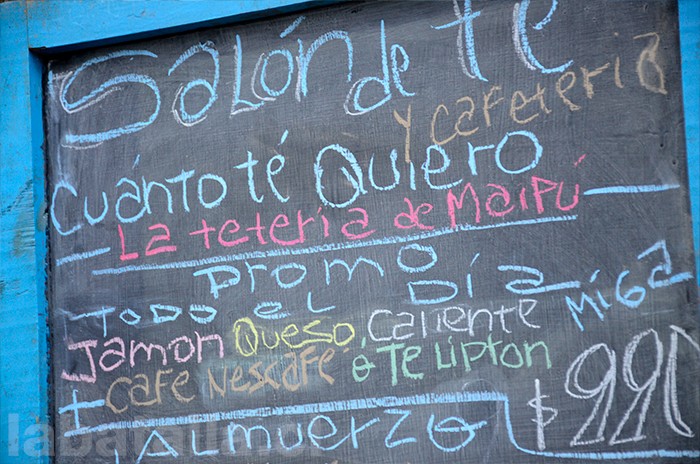 Salón de té
y cafetería
cuánto té Quiero
La tetería de Maipú
Promo
Todo EL Día
Jamon Queso, caliente Miga
café Nescafé o Te Lipton
+
$990
Almuerzo